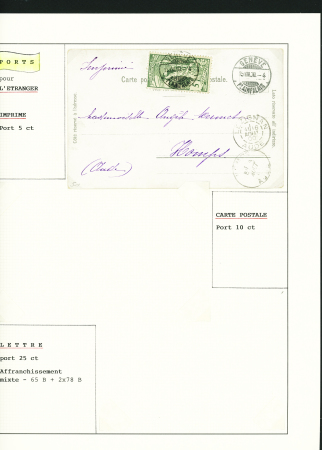 PORTS
pour
L'ETRANGER
IMPRIME
Port 5 ct
Imprimé
Carte postale.
GENÈVE
Mademoiselle
Homps
(Aude)
CARTE POSTALE
Port 10 ct
LETTRE
port 25 ct
Affranchissement
mixte - 65 B + 2x78 B